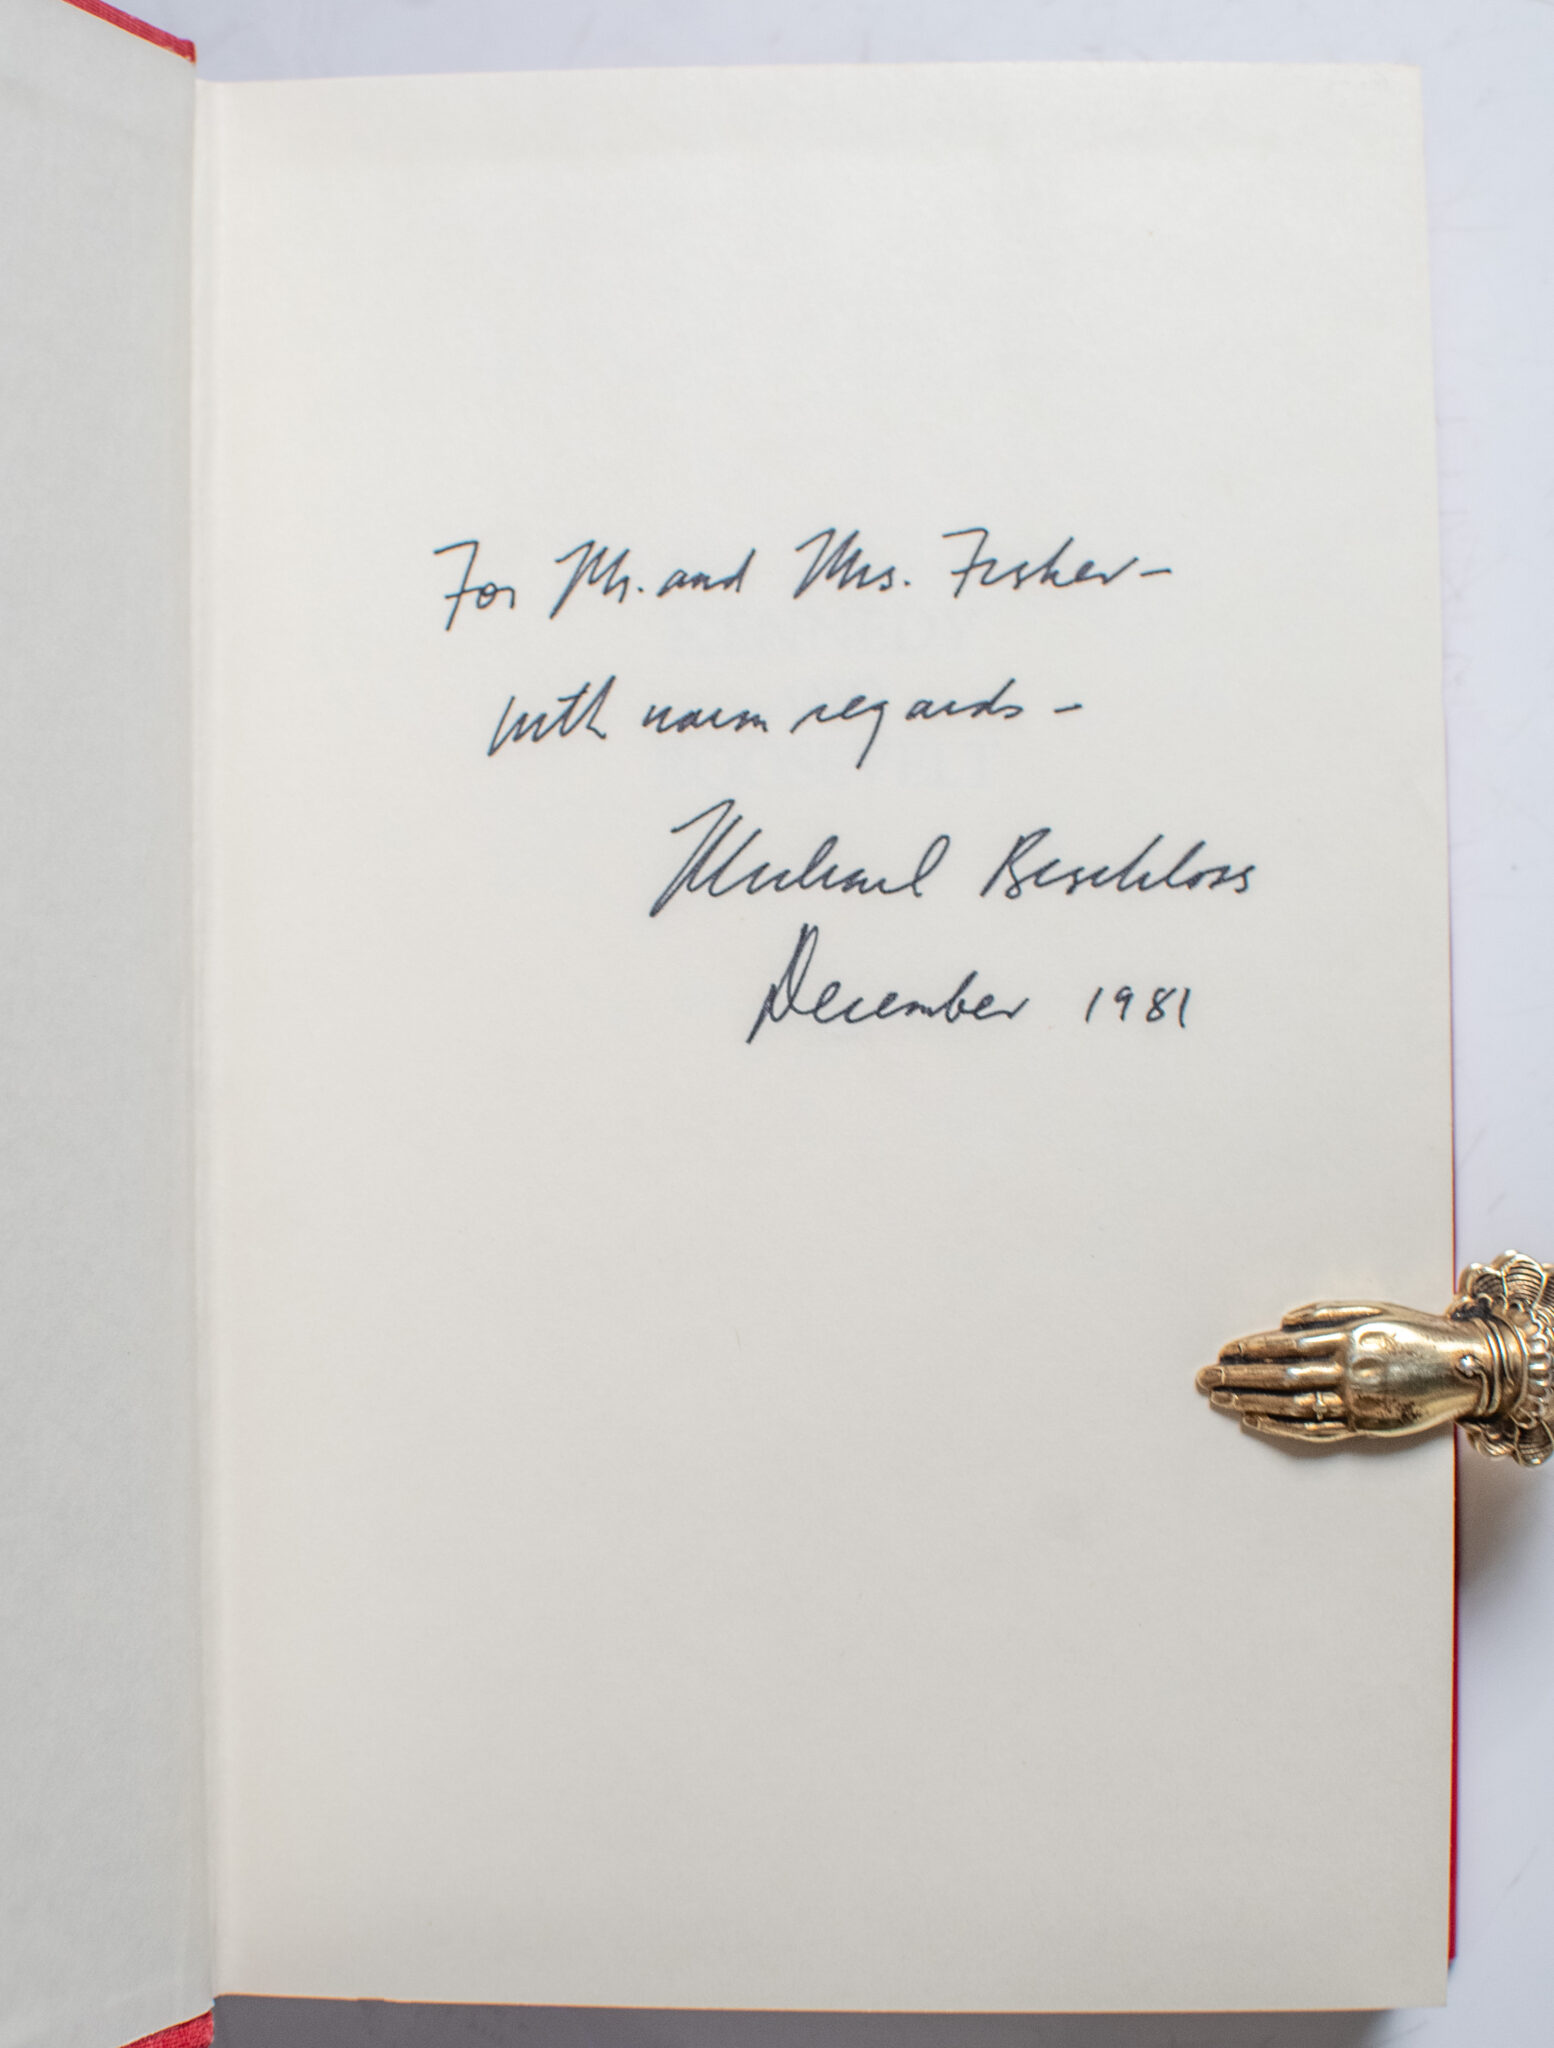 For Mr. and Mrs. Fisher –
with warm regards –
Michael Beschloss
December 1981